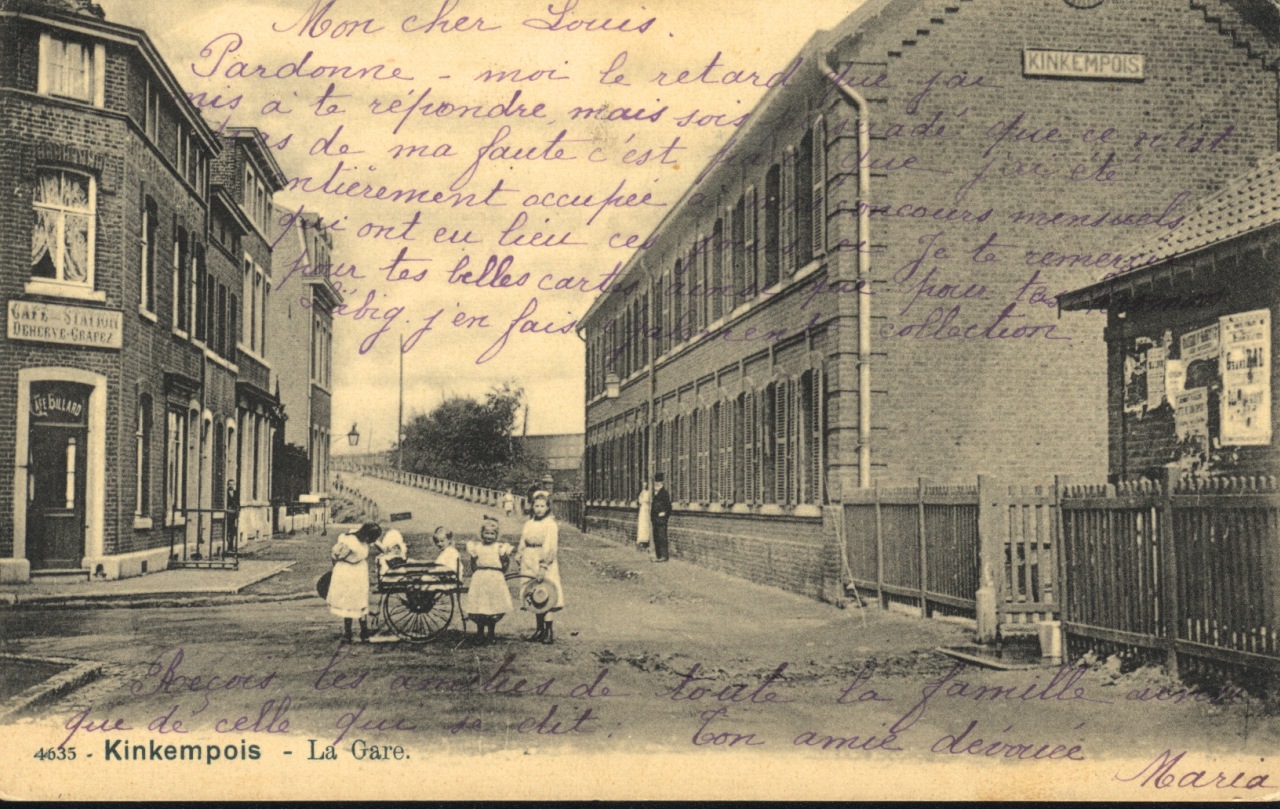 Mon cher Louis.
Pardonne - moi le retard que j'ai
mis à te répondre, mais sois que ce n'est
pas de ma faute c'est que j'ai été
entièrement occupée concours mensuels
qui ont eu lieu ces Je te remercie
pour tes belles cartes ainsi que pour tes
j'en fais collection
KINKEMPOIS
CAFÉ - STATION
DEHERVE-GRAFEZ
CAFÉ BILLARD
Reçois les amitiés de toute la famille ainsi
que de celle qui se dit. Ton amie dévouée
Maria
4635 - Kinkempois - La Gare.